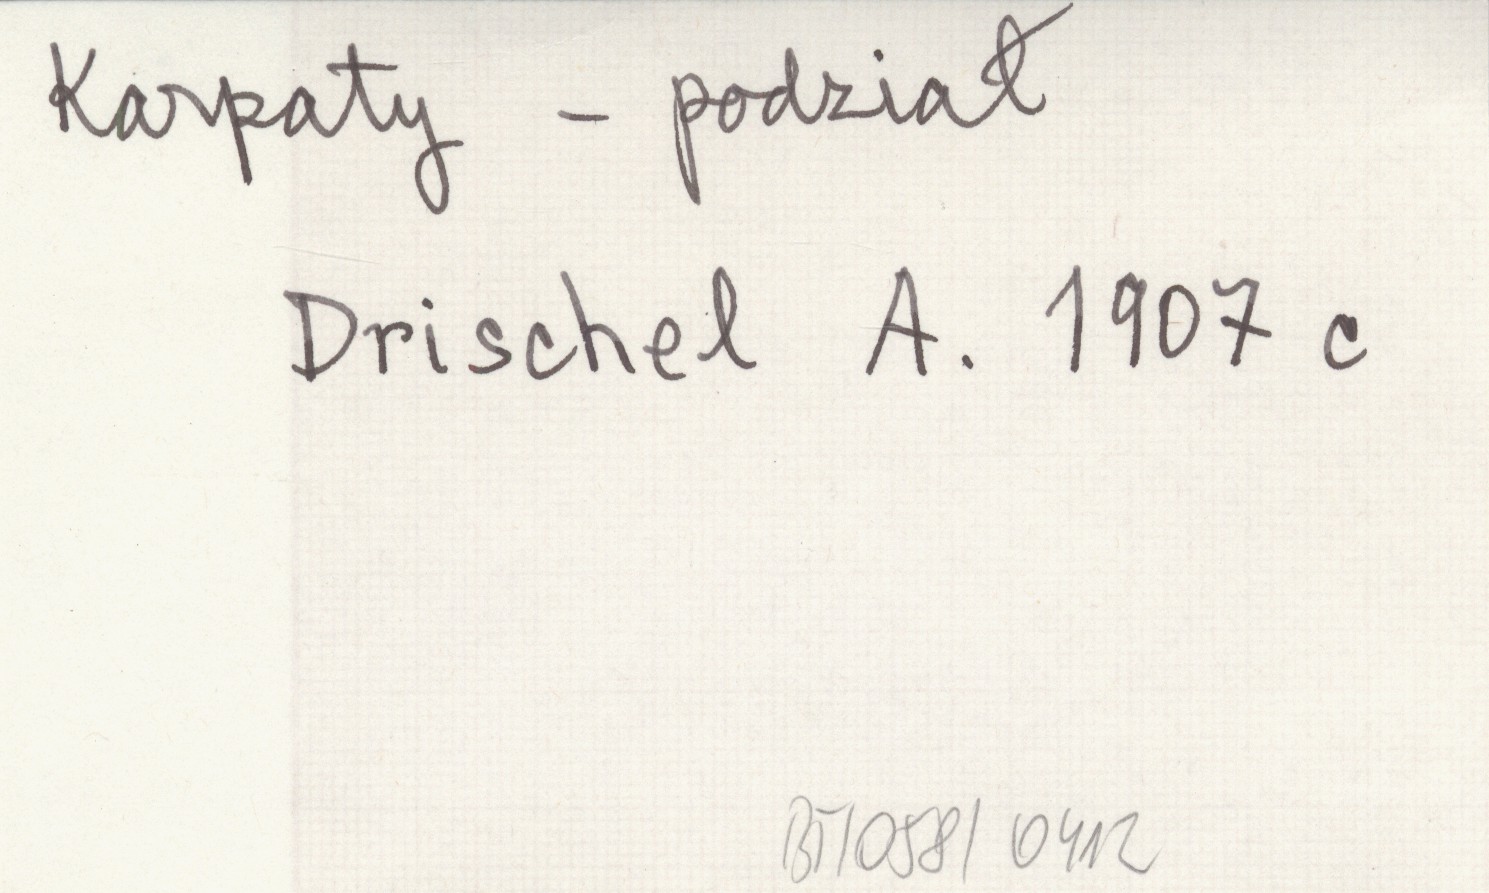 Karpaty - podział
Drischel A. 1907 c
BT/058/0412